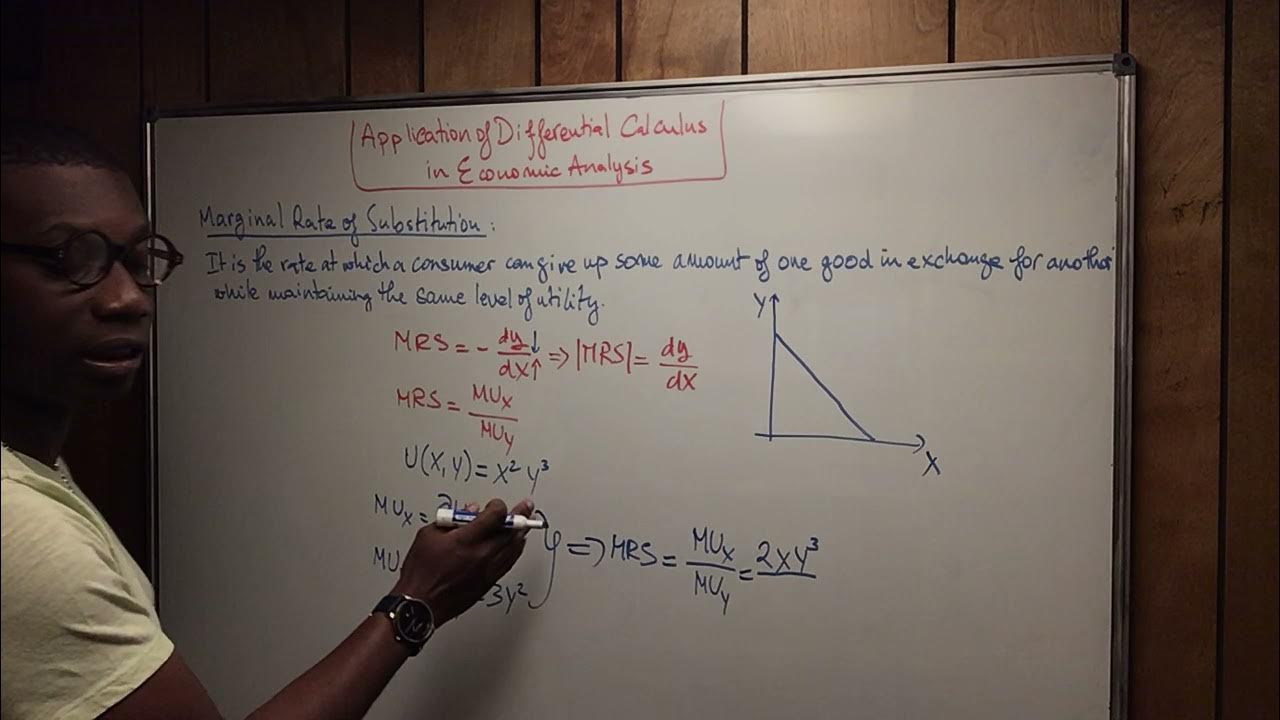 Application of Differential Calculus
in Economic Analysis
Marginal Rate of Substitution:
It is the rate at which a consumer can give up some amount of one good in exchange for another
while maintaining the same level of utility.
MRS = - dy↓/dx↑ => |MRS| = dy/dx
MRS = MUx/MUy
U(x,y) = x² y³
MUx =
MU
= 3y²
=> MRS = MUx/MUy = 2xy³
Y
X